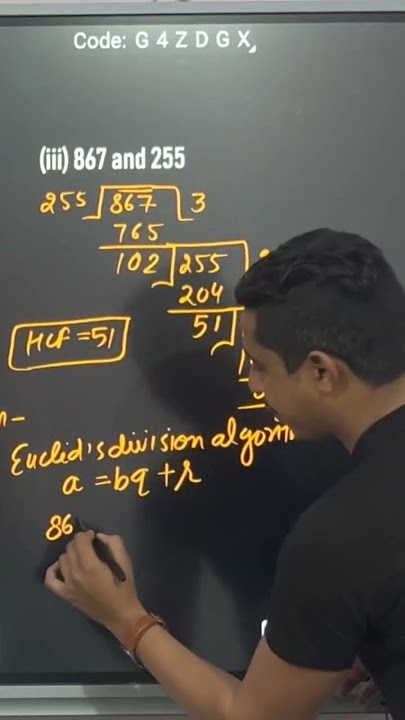 Code: G 4 Z D G X
(iii) 867 and 255
255 867 3
765
102 255
204
51
Hcf = 51
Euclid's division
a = bq + r
86